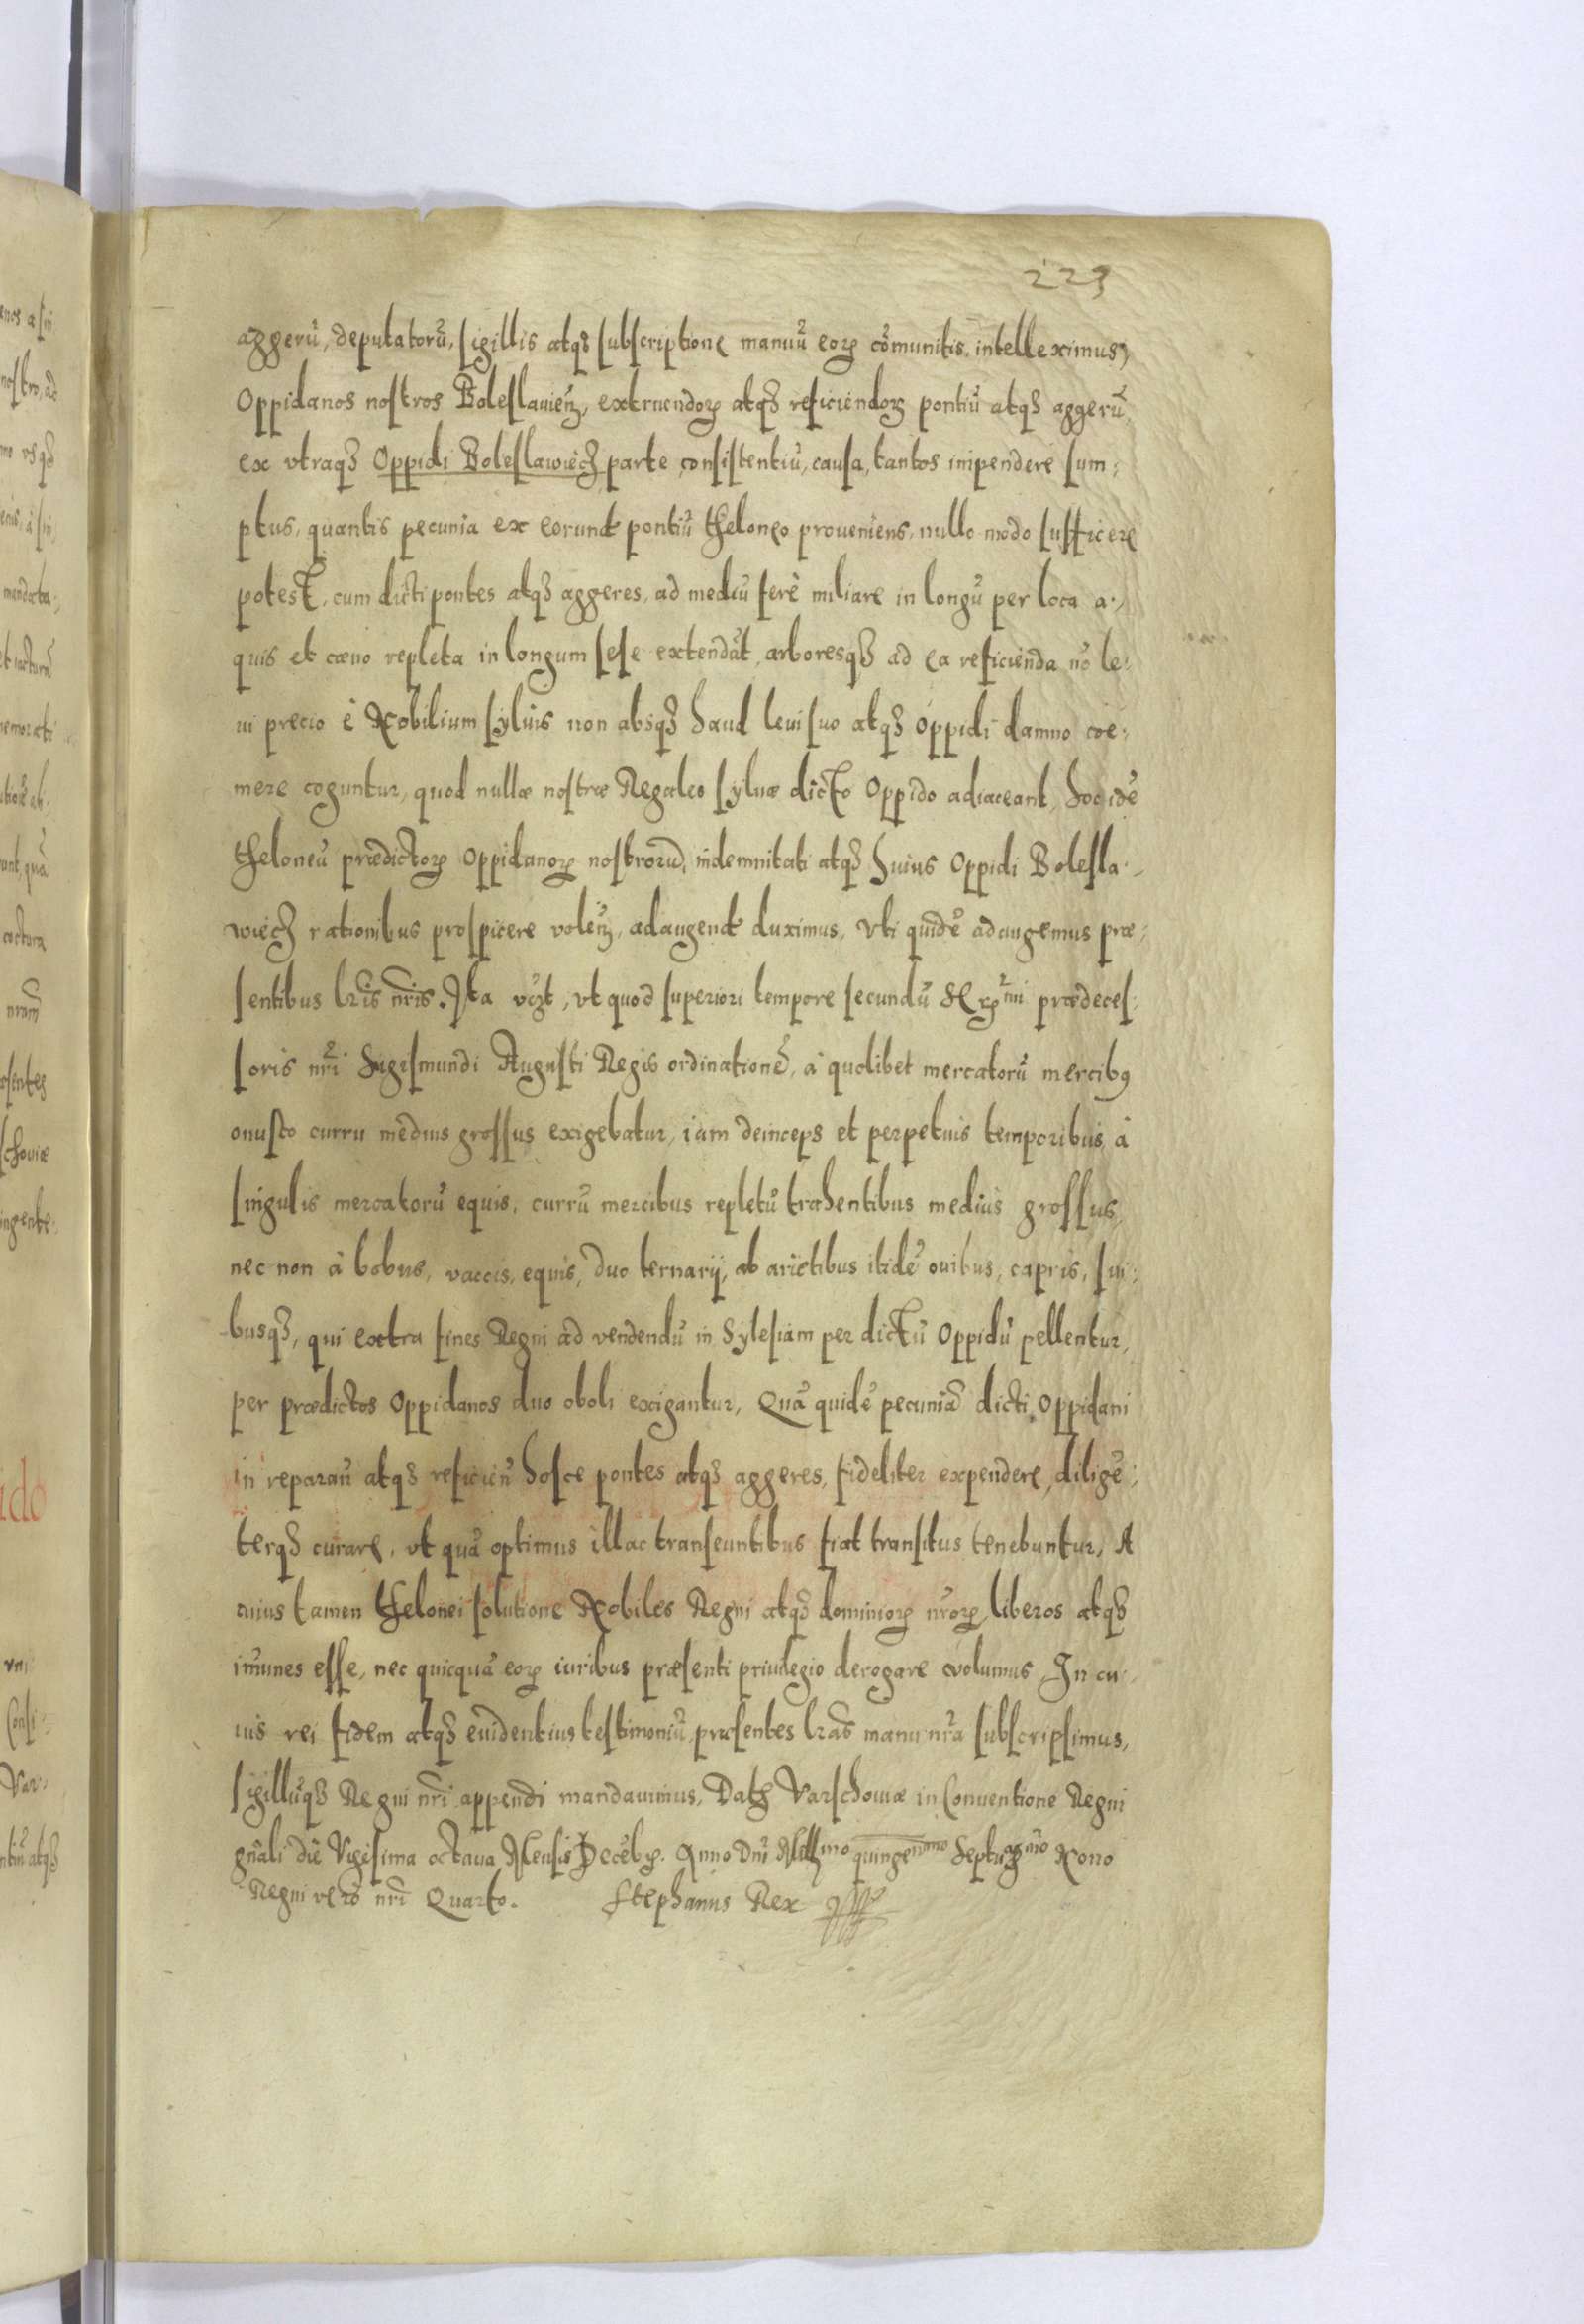 223
aggerũ, deputatorũ, sigillis atq₃ subscriptione manuũ eoꝝ cõmunitis, intelleximus,
Oppidanos nostros Boleslauieñ, extruendoꝝ atq₃ reficiendoꝝ pontiũ atq₃ aggerũ,
ex vtraq₃ Oppidi Boleslawiecz parte consistentiũ, causa, tantos inpendere sum:
ptus, quantis pecunia ex eorund pontiũ theloneo proueniens, nullo modo sufficere
potest, cum dicti pontes atq₃ aggeres, ad mediũ ferè miliare in longũ per loca a:
quis et cœno repleta in longum sese extendãt, arboresq₃ ad ea reficienda nõ le:
ui precio è Nobilium syluis non absq₃ haud leui suo atq₃ Oppidi damno coe:
mere coguntur, quod nullæ nostræ Regales syluæ dicto Oppido adiaceant, hoc idẽ
theloneũ prædictoꝝ Oppidanoꝝ nostrorũ, indemnitati atq₃ huius Oppidi Bolesla:
wiecz rationibus prospicere voleñ, adaugend duximus, vti quidẽ adaugemus præ:
sentibus lr̃is nr̃is. Ita vczt, vt quod superiori tempore secundũ Serꝫmi prædeces:
soris nr̃i Sigismundi Augusti Regis ordinationẽ, à quolibet mercatorũ mercibꝰ
onusto curru medius grossus exigebatur, iam deinceps et perpetuis temporibus à
singulis mercatorũ equis, currũ mercibus repletũ trahentibus medius grossus,
nec non à bobus, vaccis, equis, duo ternarij, ab arietibus itidẽ ouibus, capris, sui:
busq₃, qui extra fines Regni ad vendendũ in Sylesiam per dictũ Oppidũ pellentur,
per prædictos Oppidanos duo oboli exigantur, Quã quidẽ pecuniã dicti Oppidani
in reparañ atq₃ reficieñ hosce pontes atq₃ aggeres, fideliter expendere, diligẽ:
terq₃ curare, vt quã optimus illac transeuntibus fiat transitus tenebuntur, A
cuius tamen thelonei solutione Nobiles Regni atq₃ dominioꝝ nr̃oꝝ liberos atq₃
im̃unes esse, nec quicquã eoꝝ iuribus præsenti priuilegio derogare volumus. In cu:
ius rei fidem atq₃ euidentius testimoniũ, præsentes lr̃as manu nr̃a subscripsimus,
sigillũq₃ Regni nr̃i appendi mandauimus, Datꝫ Varschouiæ in Conuentione Regni
gñali die Vigesima octaua Mensis Decẽbꝝ. Anno Dñi Millmo quingenmo Septuagmo Nono
Regni verò nr̃i Quarto. Stephanus Rex